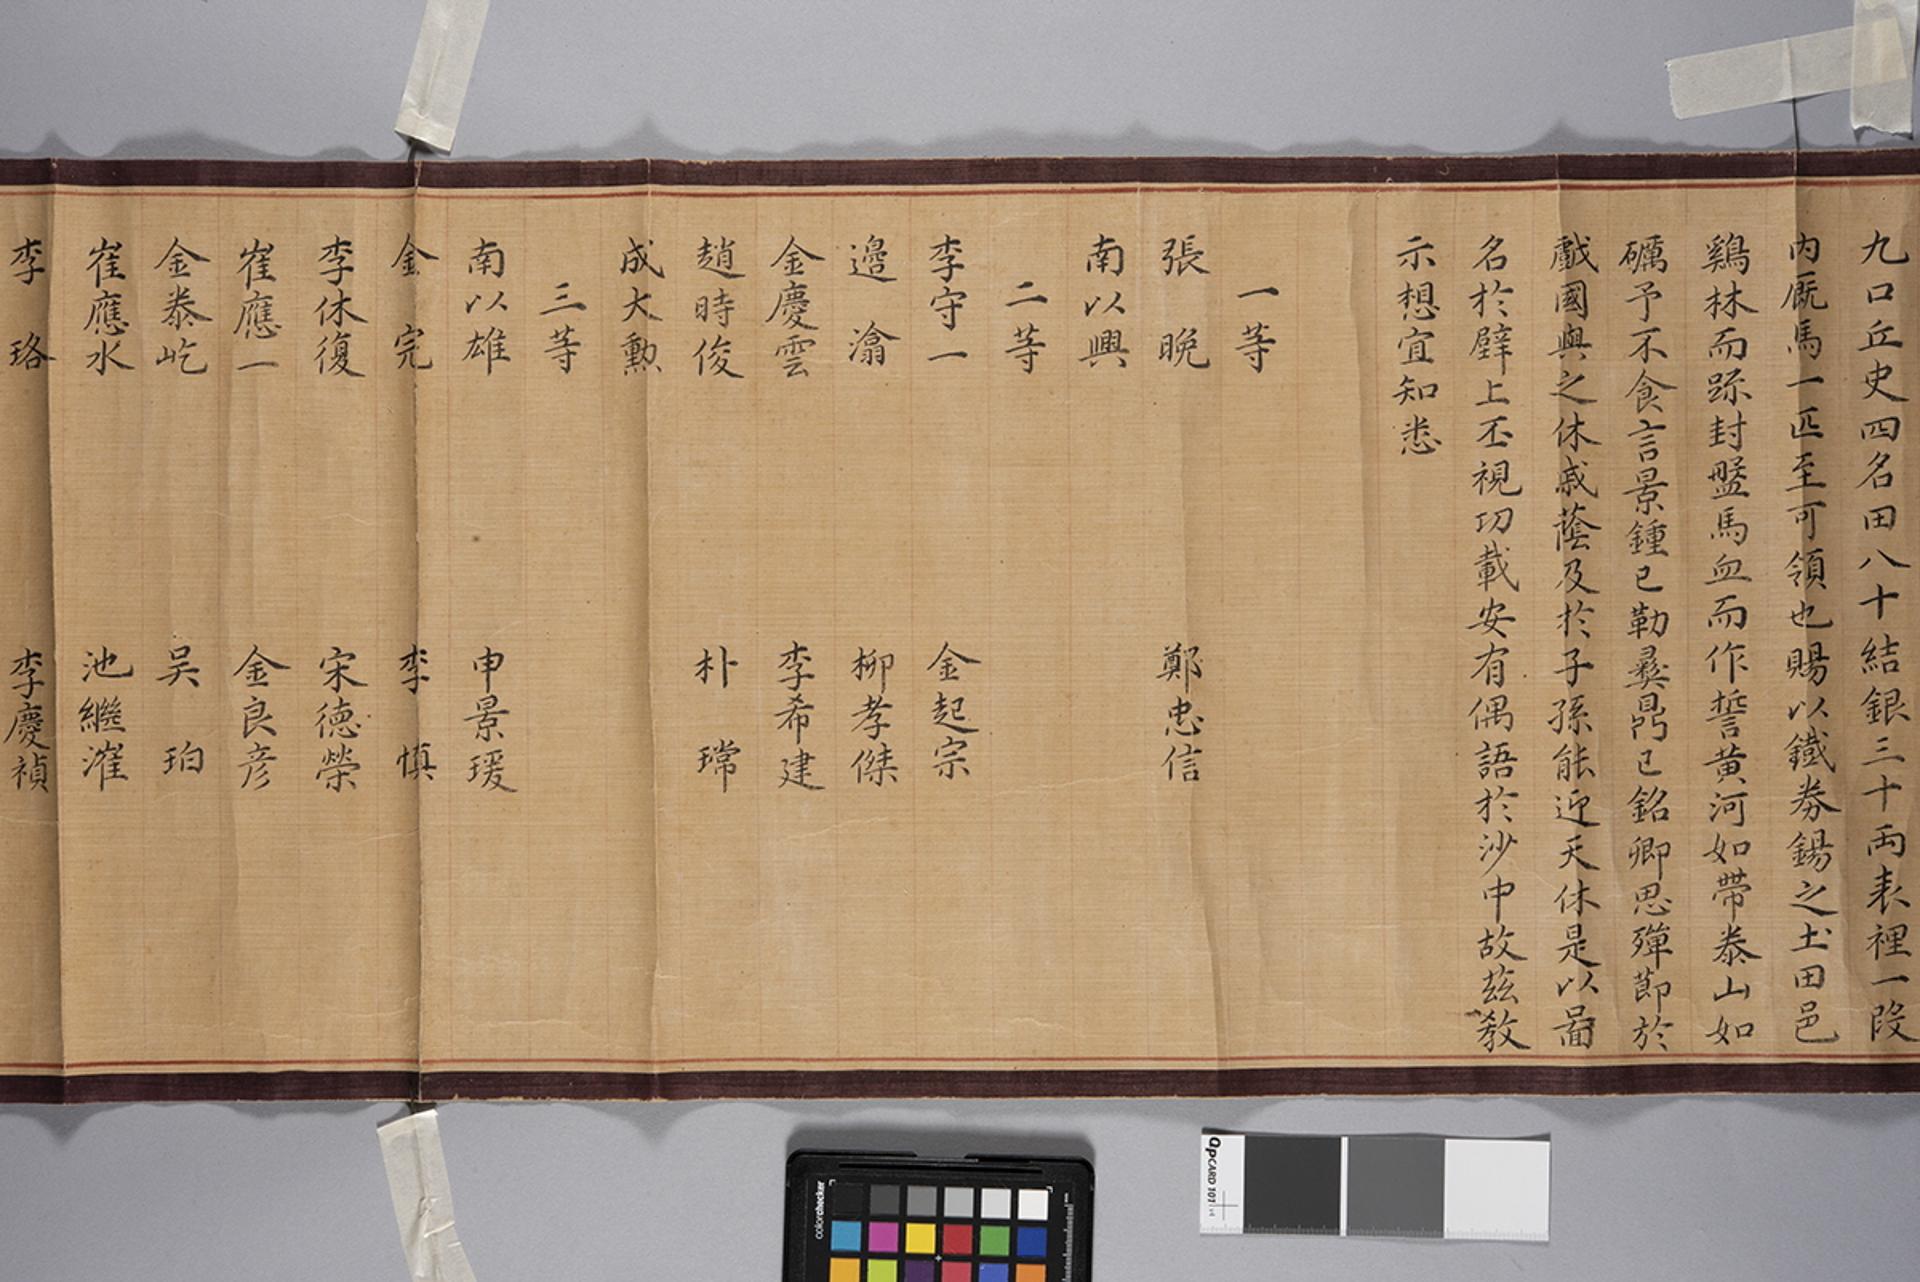 九口丘史四名田八十結銀三十両表裡一段
内厩馬一匹至可領也賜以鐵券錫之土田邑
鷄林而跡封盤馬血而作誓黄河如帶泰山如
礪予不食言景鍾已勒彛鼎已銘卿思殫節於
戱國與之休戚蔭及於子孫能迎天休是以啚
名於壁上丕視功載安有偶語於沙中故玆敎
示想宜知悉
一等
張晩 鄭忠信
南以興
二等
李守一 金起宗
邉潝 柳孝傑
金慶雲 李希建
趙時俊 朴瑺
成大勳
三等
南以雄 申景瑗
金完 李愼
李休復 宋德榮
崔應一 金良彦
金泰屹 吴珀
崔應水 池繼漼
李珞 李慶禎
QPCARD 101 v4
colorchecker